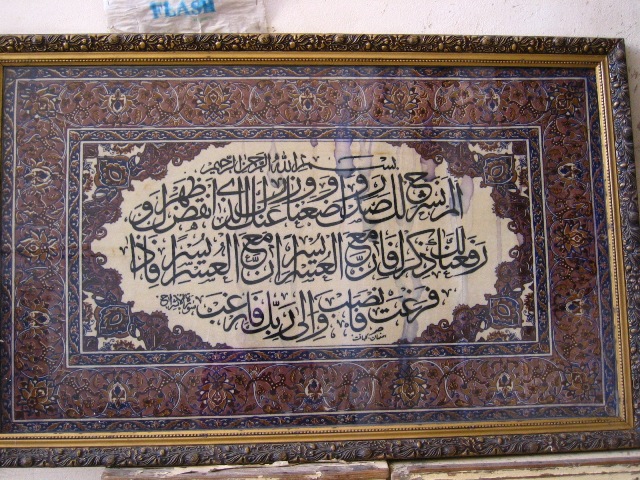 FLASH
بسم الله الرحمن الرحيم
الم نشرح لك صدرك و وضعنا عنك وزرك الذى انقض ظهرك و
رفعنا لك ذكرك فان مع العسر يسرا ان مع العسر يسرا فاذا
فرغت فانصب و الى ربك فارغب